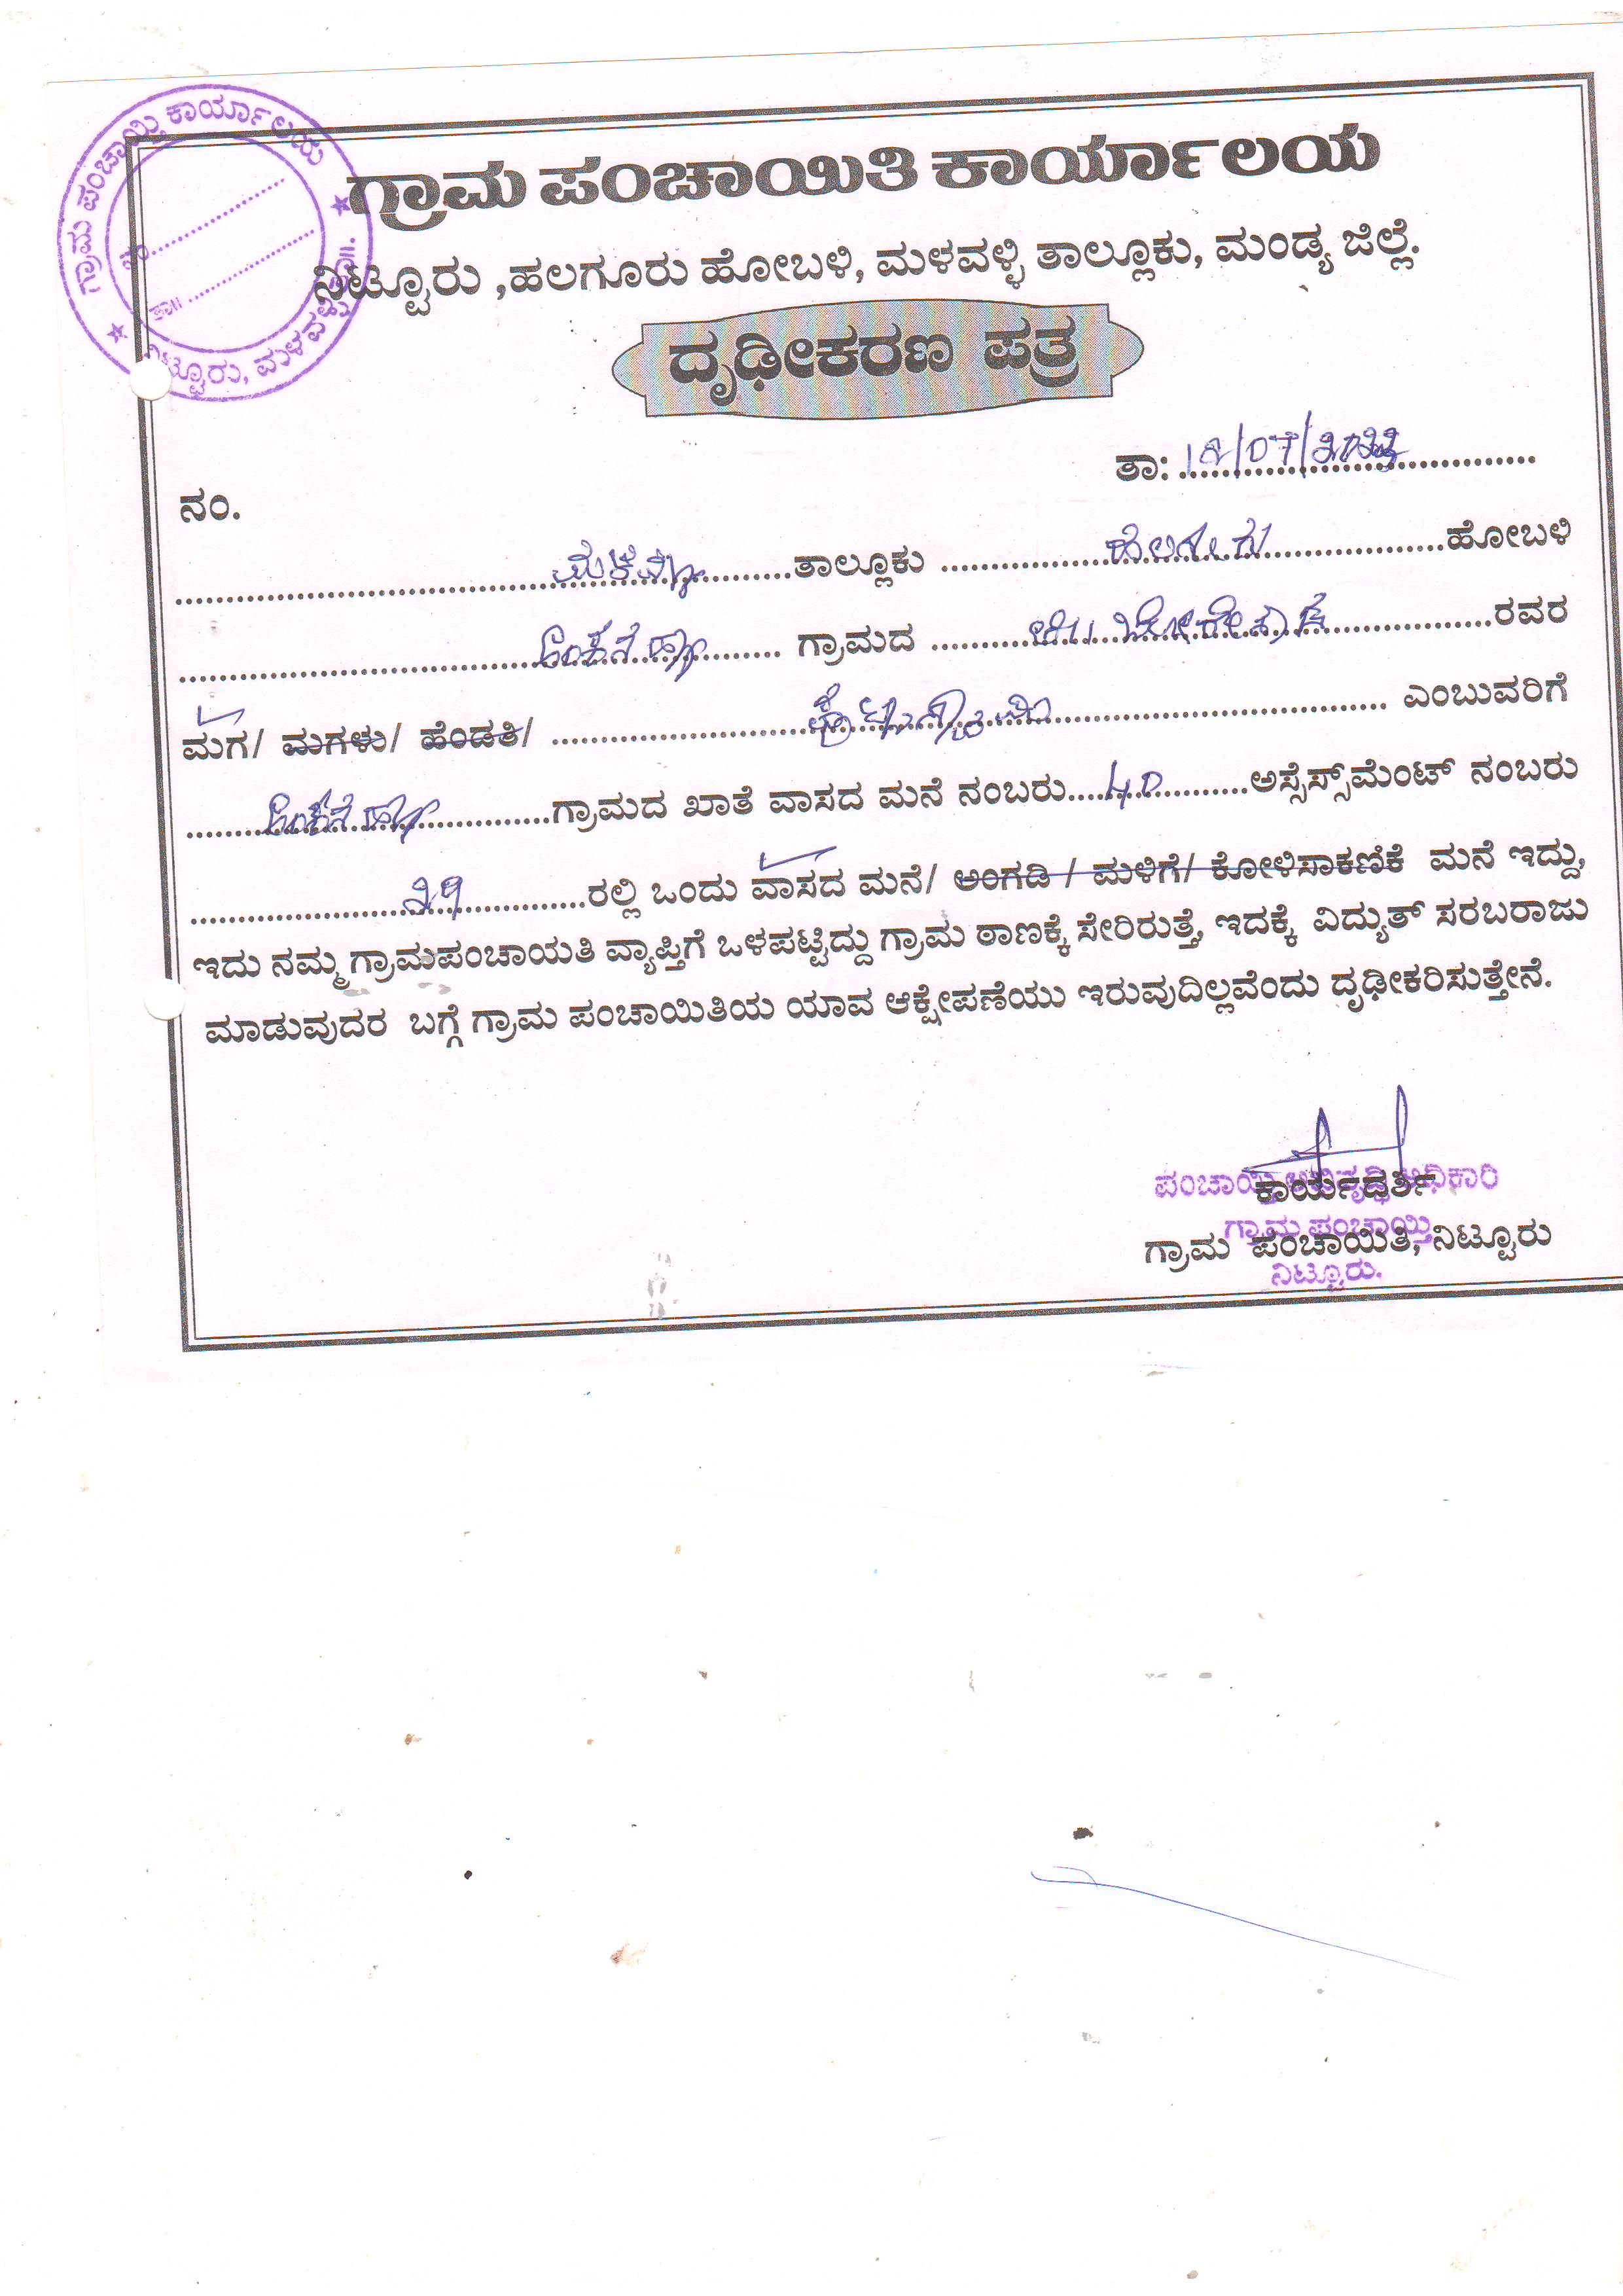 ಗ್ರಾಮ ಪಂಚಾಯ್ತಿ ಕಾರ್ಯಾಲಯ
ನಂ..................
ತಾ॥..................
ನಿಟ್ಟೂರು, ಮಳವಳ್ಳಿ ತಾ॥.
ಗ್ರಾಮ ಪಂಚಾಯಿತಿ ಕಾರ್ಯಾಲಯ
ನಿಟ್ಟೂರು ,ಹಲಗೂರು ಹೋಬಳಿ, ಮಳವಳ್ಳಿ ತಾಲ್ಲೂಕು, ಮಂಡ್ಯ ಜಿಲ್ಲೆ.
ದೃಢೀಕರಣ ಪತ್ರ
ತಾ: 18/07/2022
ನಂ.
ಮಳವಳ್ಳಿ ತಾಲ್ಲೂಕು ಹಲಗೂರು ಹೋಬಳಿ
ಗ್ರಾಮದ ರವರ
ಮಗ/ ಮಗಳು/ ಹೆಂಡತಿ/ ಎಂಬುವರಿಗೆ
ಗ್ರಾಮದ ಖಾತೆ ವಾಸದ ಮನೆ ನಂಬರು 40 ಅಸ್ಸೆಸ್ಸ್‌ಮೆಂಟ್ ನಂಬರು
29 ರಲ್ಲಿ ಒಂದು ವಾಸದ ಮನೆ/ ಅಂಗಡಿ / ಮಳಿಗೆ/ ಕೋಳಿಸಾಕಣಿಕೆ ಮನೆ ಇದ್ದು,
ಇದು ನಮ್ಮ ಗ್ರಾಮಪಂಚಾಯತಿ ವ್ಯಾಪ್ತಿಗೆ ಒಳಪಟ್ಟಿದ್ದು ಗ್ರಾಮ ಠಾಣಕ್ಕೆ ಸೇರಿರುತ್ತೆ, ಇದಕ್ಕೆ ವಿದ್ಯುತ್ ಸರಬರಾಜು
ಮಾಡುವುದರ ಬಗ್ಗೆ ಗ್ರಾಮ ಪಂಚಾಯಿತಿಯ ಯಾವ ಆಕ್ಷೇಪಣೆಯು ಇರುವುದಿಲ್ಲವೆಂದು ದೃಢೀಕರಿಸುತ್ತೇನೆ.
ಪಂಚಾಯ್ತಿ ಅಭಿವೃದ್ಧಿ ಅಧಿಕಾರಿ
ಕಾರ್ಯದರ್ಶಿ
ಗ್ರಾಮ ಪಂಚಾಯ್ತಿ
ಗ್ರಾಮ ಪಂಚಾಯಿತಿ, ನಿಟ್ಟೂರು
ನಿಟ್ಟೂರು.